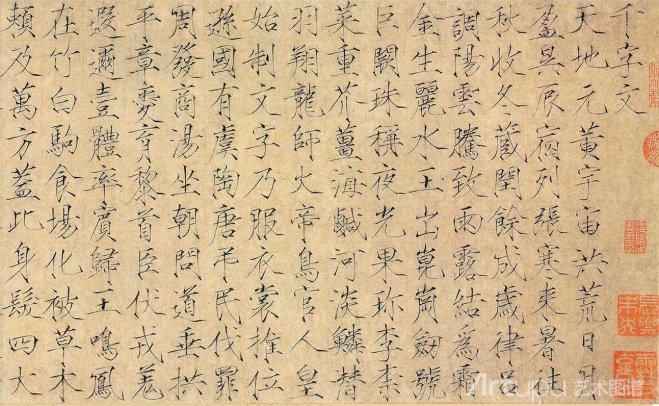 千字文
天地元黃宇宙洪荒日月
盈昃辰宿列張寒來暑往
秋收冬藏閏餘成歲律呂
調陽雲騰致雨露結爲霜
金生麗水玉出崑崗劒號
巨闕珠稱夜光果珎李柰
菜重芥薑海鹹河淡鱗潛
羽翔龍師火帝鳥官人皇
始制文字乃服衣裳推位
遜國有虞陶唐弔民伐罪
周發商湯坐朝問道垂拱
平章愛育黎首臣伏戎羌
遐邇壹體率賓歸王鳴鳳
在竹白駒食場化被草木
賴及萬方蓋此身髮四大
Artupu 艺术图谱